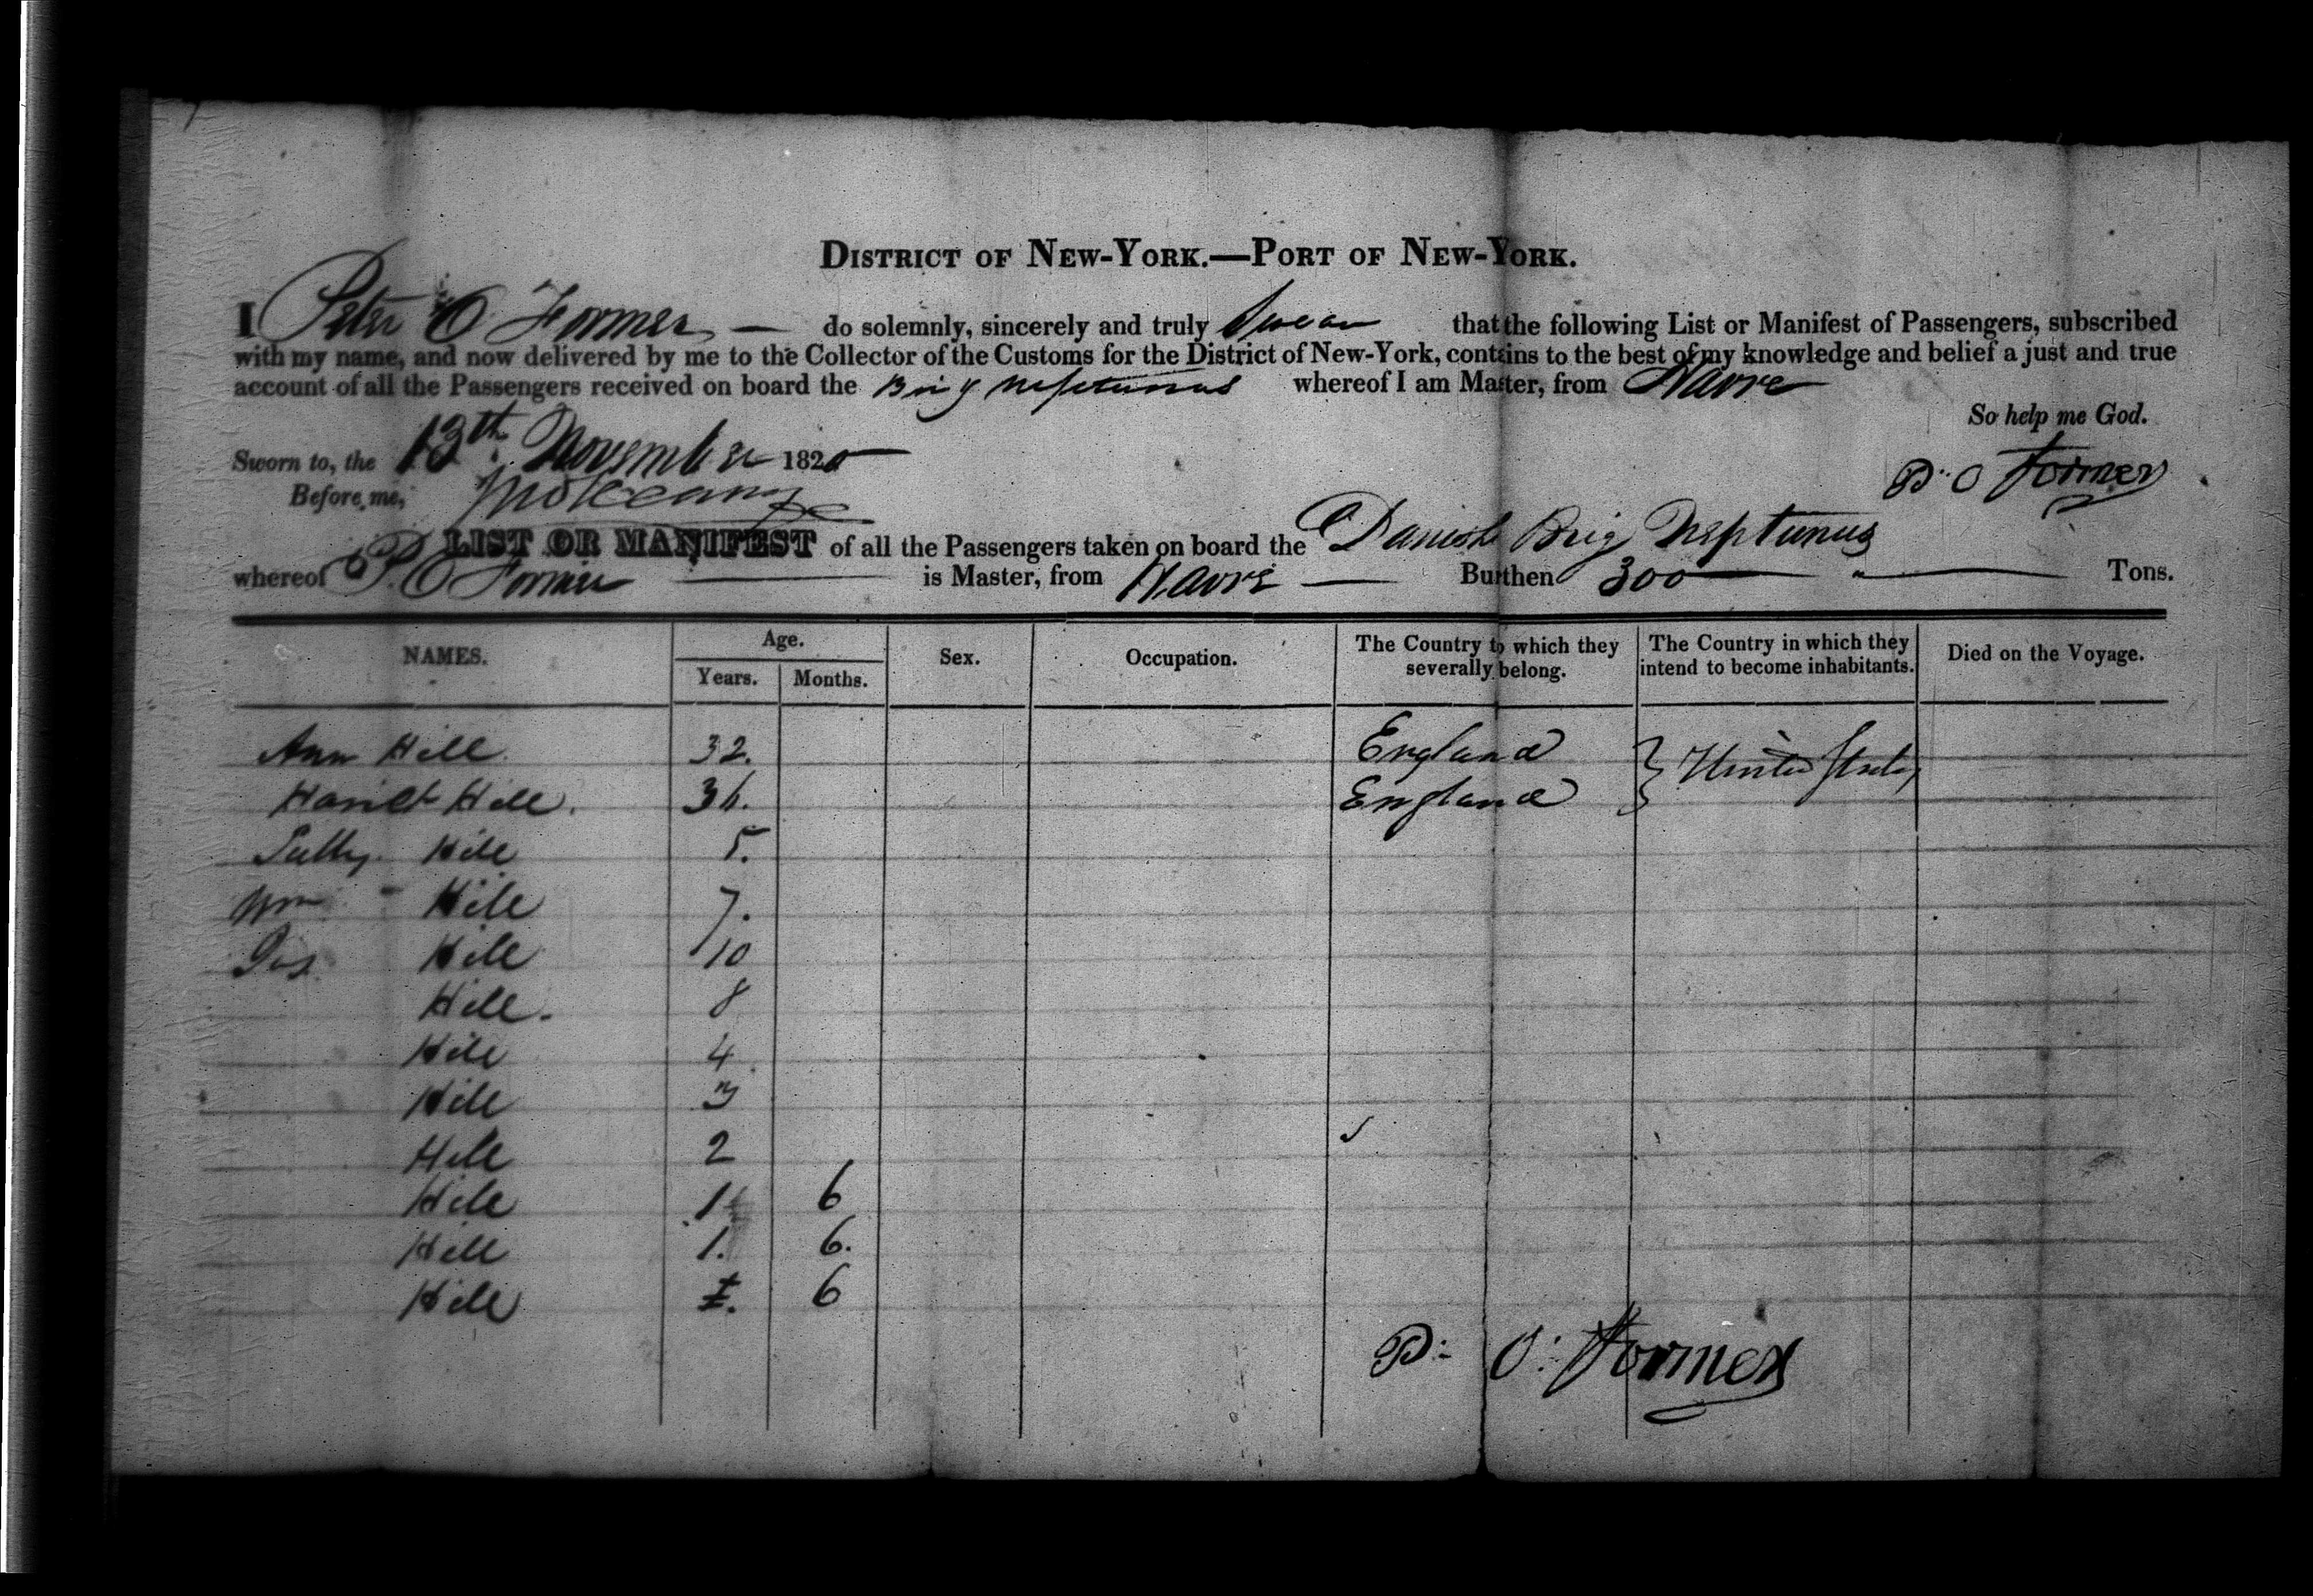 DISTRICT OF NEW-YORK.—PORT OF NEW-YORK.
I Peter O Former — do solemnly, sincerely and truly Swear that the following List or Manifest of Passengers, subscribed
with my name, and now delivered by me to the Collector of the Customs for the District of New-York, contains to the best of my knowledge and belief a just and true
account of all the Passengers received on board the Brig Neptunus whereof I am Master, from Havre
So help me God.
Sworn to, the 13th November 182
P. O Former
Before me,
LIST OR MANIFEST of all the Passengers taken on board the Danish Brig Neptunus
whereof P. O Former is Master, from Havre — Burthen 300 — " — Tons.
NAMES. Age. Sex. Occupation. The Country to which they severally belong. The Country in which they intend to become inhabitants. Died on the Voyage.
Years. Months.
Ann Hill. 32. England } United States
Hariet Hill. 36. England
Hill 5.
Wm Hill 7.
Jas Hill 10
Hill. 8
Hill 4
Hill 3
Hill 2
Hill 1 6
Hill 1. 6.
Hill 6
P: O: Former